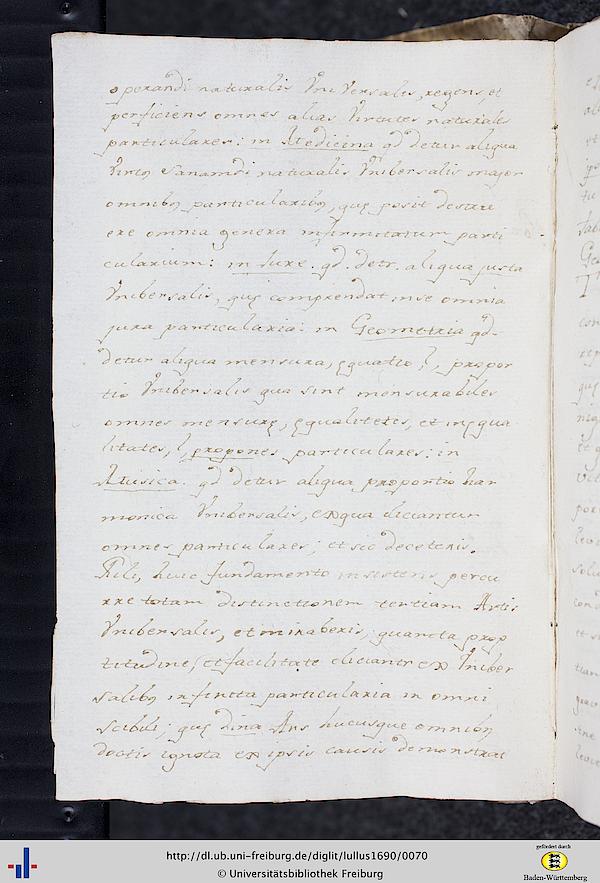 operandi naturalis Universalis, regens, et
perficiens omnes alias Virtutes naturales
particulares: in Medicina qd detur aliqua
Virtus sanandi naturalis Vniversalis major
omnibus particularibus, quę posit destru
ere omnia genera infirmitatum parti
cularium: in Jure. qd. detr. aliqua justa
Vniversalis, quę comprendat in se omnia
jura particularia: in Geometria qd-
detur aliqua mensura, ęquatio l, propor
tio Vniversalis qua sint mensurabiles
omnes mensurę, ęqualitates, et inęqua
litates, l, propones particulares: in
Musica. qd detur aliqua proportio har
monica Vniversalis, ex qua eliciantur
omnes particulares; et sic de ceteris.
Fili, huic fundamento insistens percu
rre totam distinctionem tertiam Artis
Vniversalis, et miraberis, quanta prop
titudine, et facilitate eliciantr ex Vniver
salibus infinita particularia in omni
scibili; quę dina Ars hucusque omnibus
doctis ignota ex ipsis causis demonstrat
http://dl.ub.uni-freiburg.de/diglit/lullus1690/0070
© Universitätsbibliothek Freiburg
gefördert durch
Baden-Württemberg